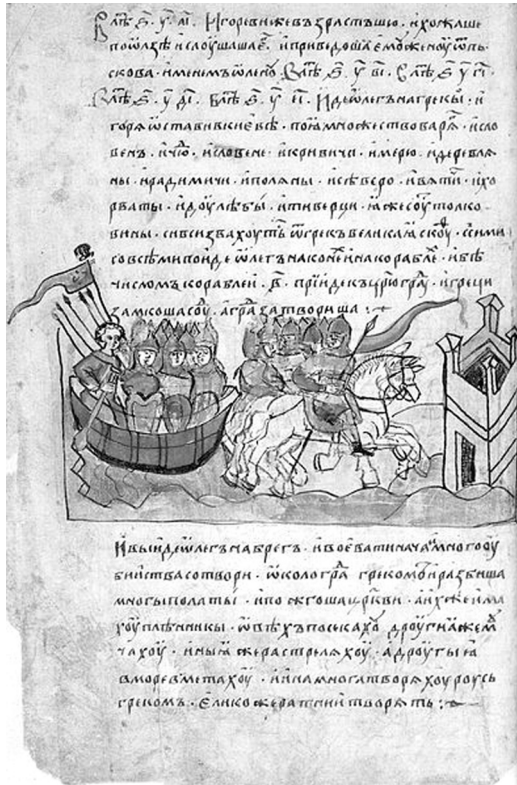 В лѣт҃ ҂ѕ҃ . у҃ . аі҃ . Игоревижевъзрастъшю . ихожаше
поѡлзѣ ислоушашаег҃ . иприведошаемоуженоуѿпь
скова . именемъѡленоу В лѣт҃ ҂ѕ҃ . у҃ ві҃ . В лѣт҃ ҂ѕ҃ у҃ гі҃ .
В лѣт҃ ҂ѕ҃ . у҃ ді҃ . В лѣт҃ ҂ѕ҃ . у҃ еі҃ . Идеѡлегънагрекы . и
горяѡставивкиевѣ . поꙗмножествоваряг҃ . исло
венъ . ичюд҃ . исловене . икривичи . имерю . идеревля
ны . ирадимичи . иполяны . исѣверо . ивятичи . ихо
рваты . идоулѣбы . итиверци . ꙗжесоуⷮтолко
вины . сивсизвахоутьс҃ ѿгрекъвеликаꙗскоуф҃ . ссими
совсѣмипоидеѡлегънаконеинакораблех҃ . ибѣ
числомъкораблеи . в҃ . прїидекъцр҃юграду . игреци
замкошасоуд҃ . аград҃затвориша :
Ивыидеѡлегънабрегъ . ивоеватинача . имногооу
бииствасотвори . ѡкологрⷣа грекомъ . иразбиша
многыполаты . ипожгошацр҃кви . аихжеима
хоуплѣнникы . ѡвѣхъпосекахоу дроугиаже моу
чахоу . иныꙗжерастрелꙗхоу . адроугыꙗ
вморевъметахоу . иинамноглатворяхоуроусь
грекомъ . еликожератнїитворять :